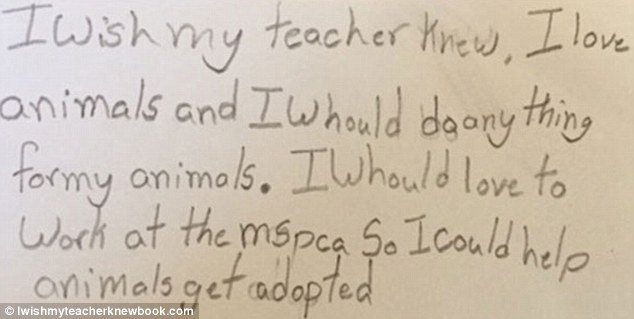 I Wish my teacher knew, I love
animals and I Whould do any thing
for my animals. I Whould love to
Work at the mspca So I could help
animals get adopted
© Iwishmyteacherknewbook.com